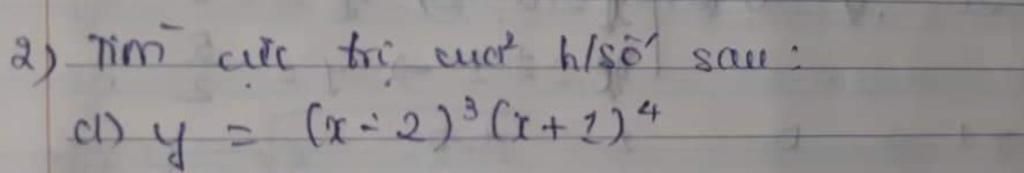 2) Tìm cực trị của h/số sau:
d) y = (x-2)³(x+1)⁴